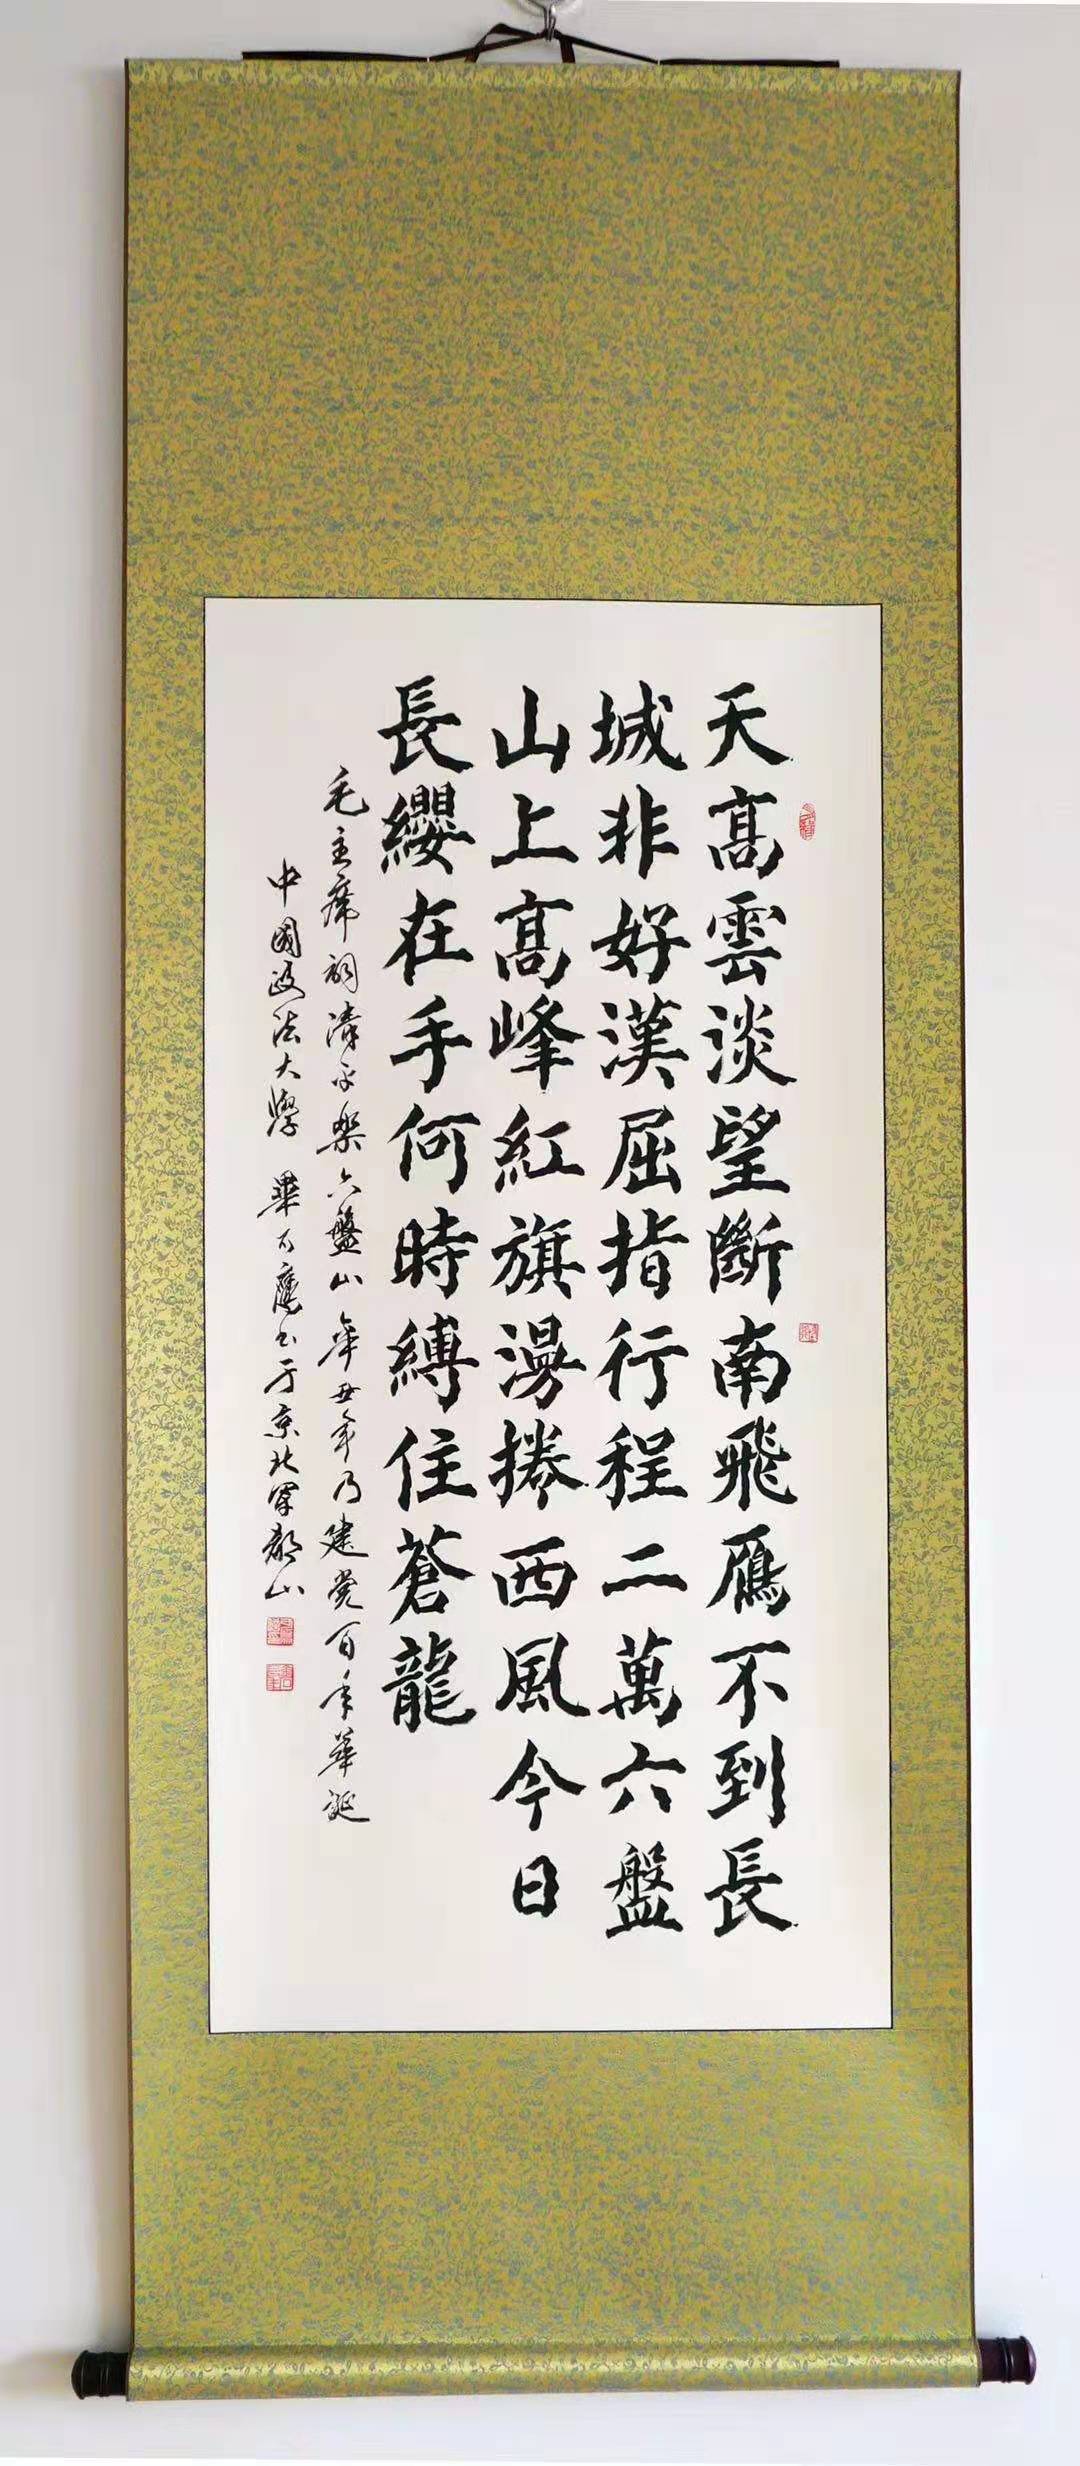 天高雲淡望斷南飛鴈不到長
城非好漢屈指行程二萬六盤
山上高峰紅旗漫捲西風今日
長纓在手何時縛住蒼龍
毛主席詞清平樂六盤山辛丑年乃建党百年華誕
中國政法大學 畢 鷹書于京北軍都山